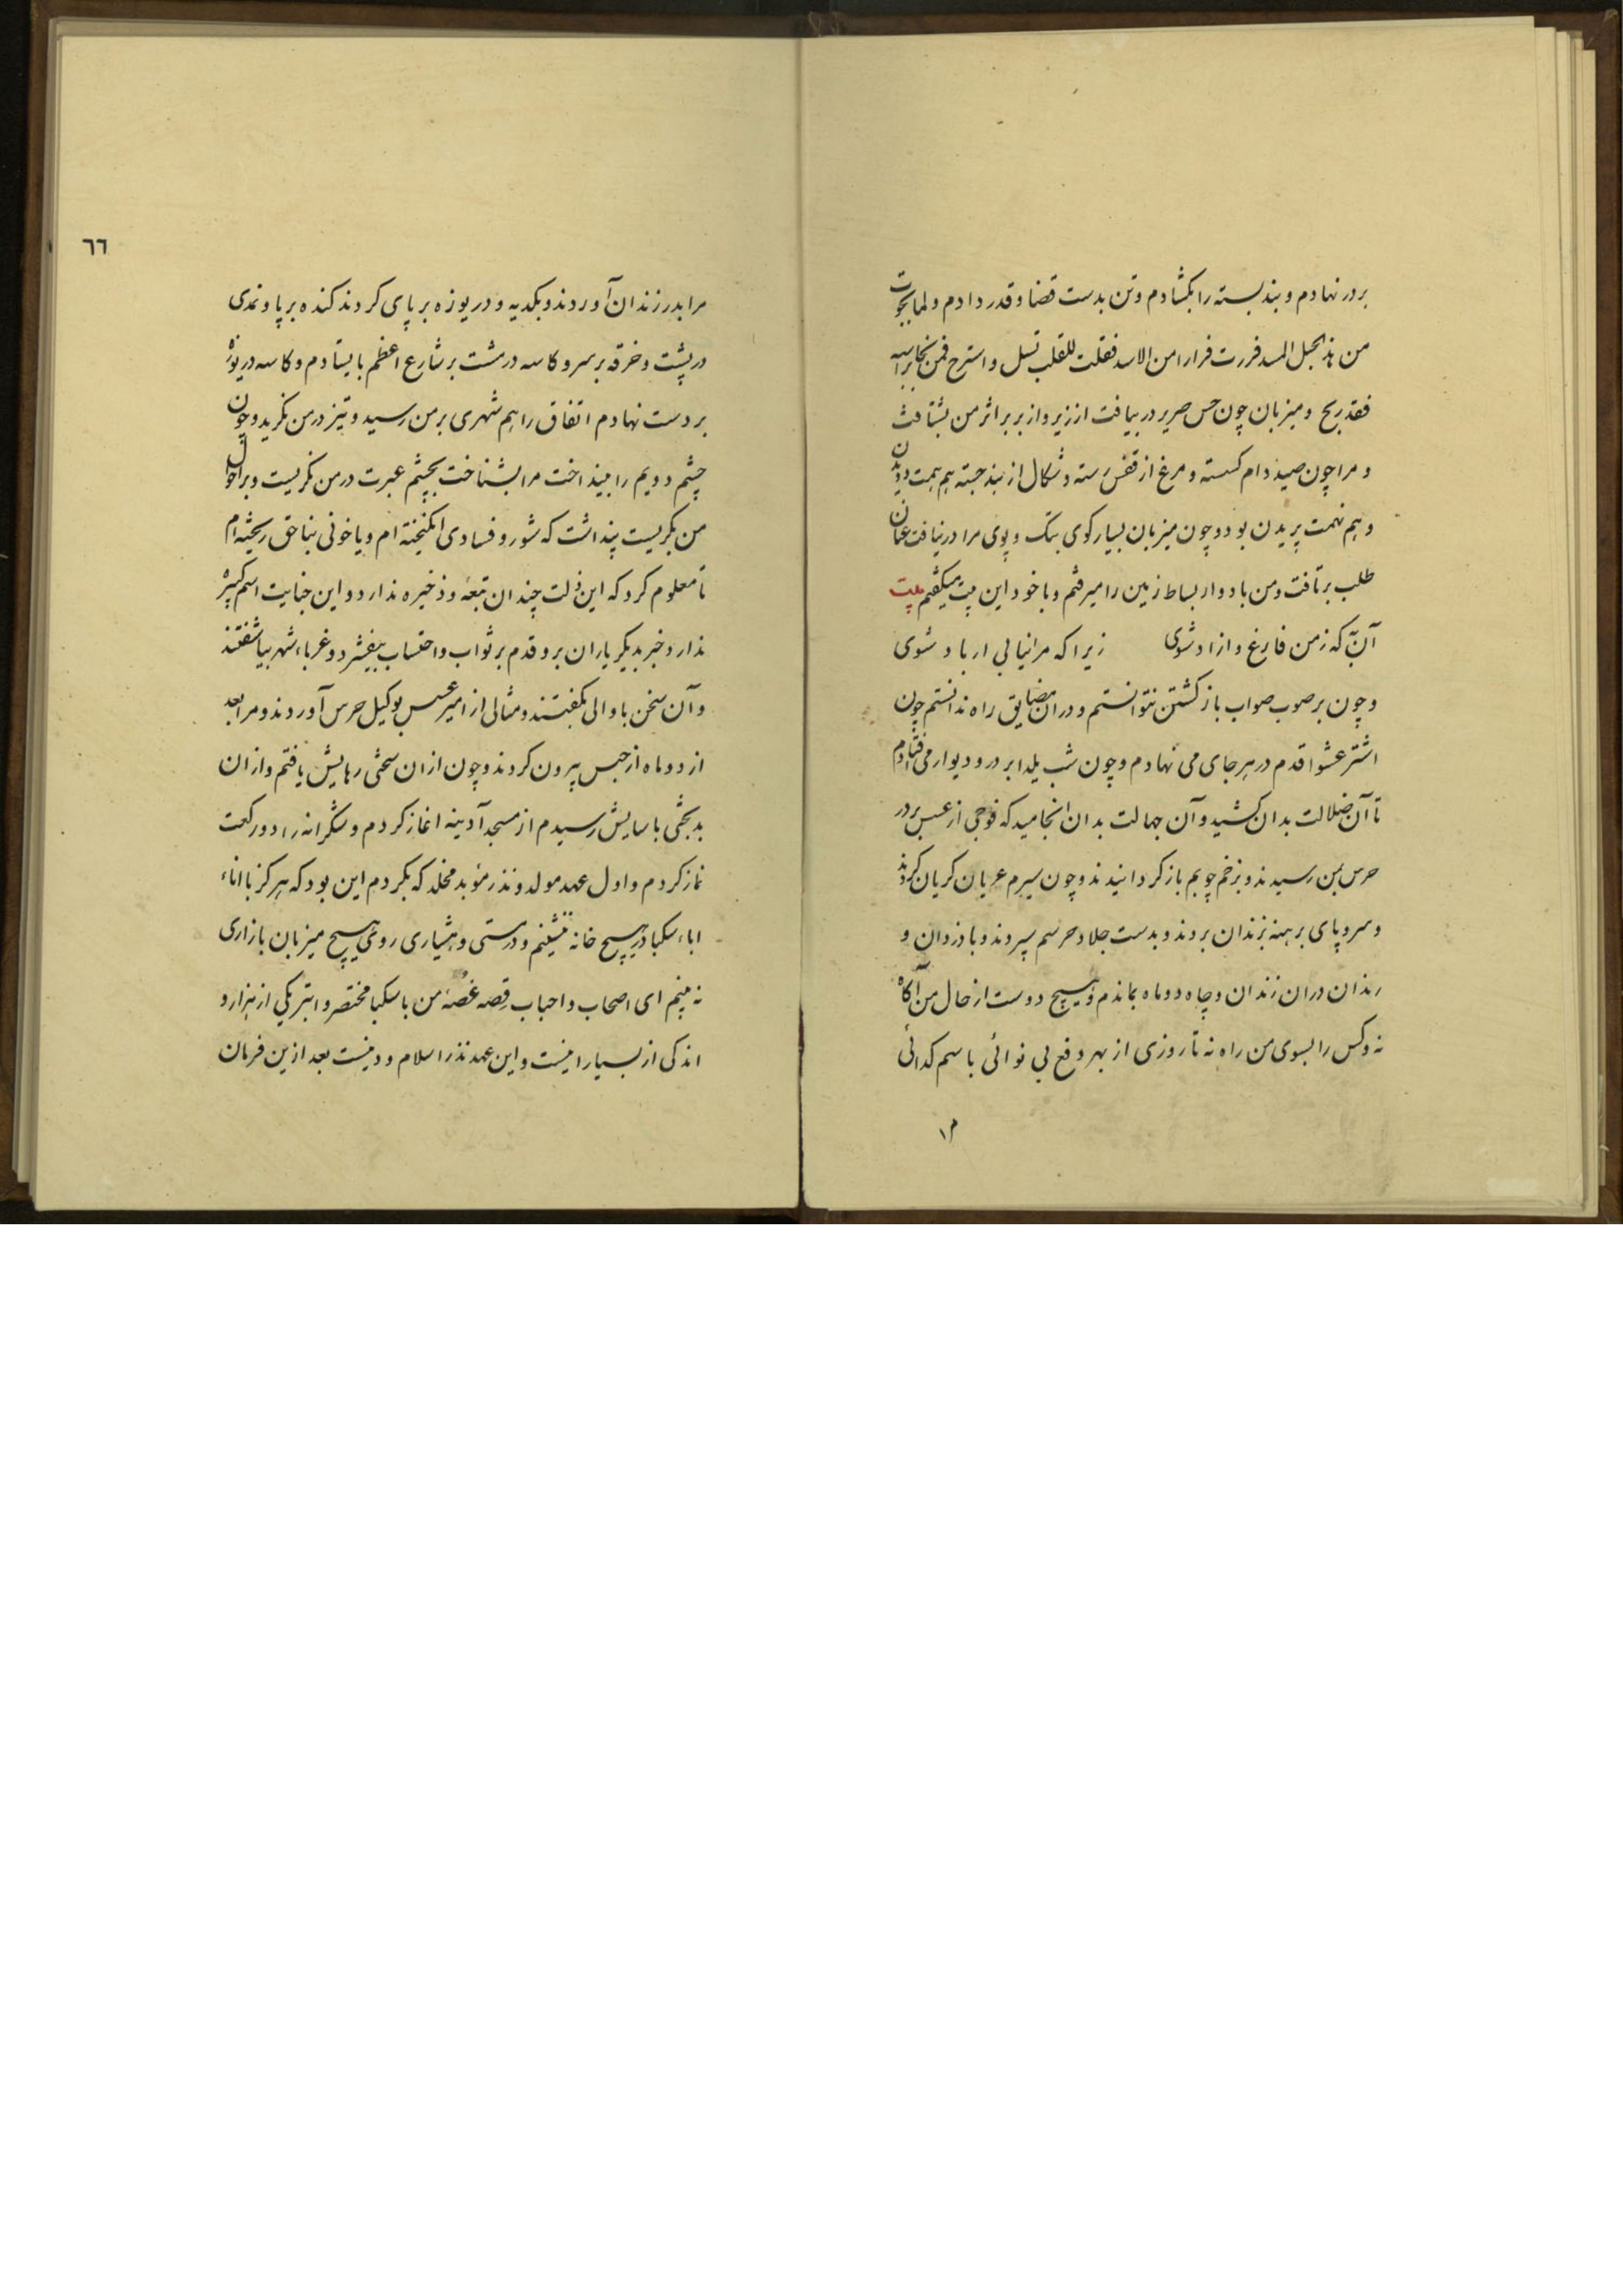 بر در نهادم و بند بسته را بکشادم و تن بدست قضا و قدر دادم و لما نجوت
من هذ الحبل المسد فررت فرارا من الاسد فقلت للقلب تسل و استرح فمن نجا براسه
فقد ربح و میزبان چون حس صریر در بیافت از زیر و از بر بر اثر من بشتافت
و مرا چون صید دام کسسته و مرغ از قفس رسته و شکال از بند جسته هم همت دویدن
و هم نهمت پریدن بود و چون میزبان بسیار کوی بتک و پوی مرا در نیافت عنان
طلب بر تافت و من باد وار بساط زمین را میرفتم و با خود این بیت میکفتم بیت
آن به که ز من فارغ و ازاد شوی زیرا که مرا نیابی ار باد شوی
و چون بر صوب صواب باز کشتن نتوانستم و دران مضایق راه ندانستم چون
اشتر عشوا قدم در هر جای می نهادم و چون شب یلدا بر در و دیوار می فتادم
تا آن ضلالت بدان کشید و آن جهالت بدان انجامید که فوجی از عسس بر در
حرس بمن رسیدند و بزخم چوبم باز کردانیدند و چون سیرم عریان کریان کردند
و سر و پای برهنه بزندان بردند و بدست جلاد حرسم سپردند و با دزدان و
رندان دران زندان و چاه دو ماه بماندم و هیچ دوست از حال من آکاه
نه و کس را بسوی من راه نه تا روزی از بهر دفع بی نوائی باسم کدائی
٦٦
مرا بدر زندان آوردند و بکدیه و دریوزه بر پای کردند کنده بر پا و نمدی
در پشت و خرقه بر سر و کاسه در مشت بر شارع اعظم بایستادم و کاسه دریوزه
بر دست نهادم اتفاق را هم شهری بر من رسید و تیز در من نکرید و چون
چشم دویم را بینداخت مرا بشناخت بچشم عبرت در من نکریست و بر احوال
من بکریست پنداشت که شور و فسادی انکیخته ام و یا خونی بناحق ریخته ام
تا معلوم کرد که این ذلت چندان تبعه و ذخیره ندارد و این جنایت اسم کبیره
ندارد خبر بدیکر یاران برد و قدم بر ثواب و احتساب بیفشرد و غرباء شهر بیاشفتند
و آن سخن با والی بکفتند و مثالی از امیر عسس بوکیل حرس آوردند و مرا بعد
از دو ماه از حبس بیرون کردند و چون ازان سختی رهایش یافتم و ازان
بدبختی باسایش رسیدم از مسجد آدینه اغاز کردم و شکرانه را دو رکعت
نماز کردم و اول عهد مولد و نذر مؤبد مخلد که بکردم این بود که هرکز با اناء
اباء سکبا در هیچ خانه ننشینم و در مستی و هشیاری روی هیچ میزبان بازاری
نه بینم ای اصحاب و احباب قصه غصه من با سکبا مختصر و ابتر یکی از هزار و
اندکی از بسیار اینست و این عهد نذر اسلام و دینست بعد ازین فرمان